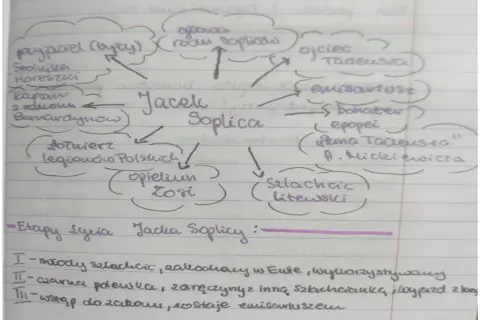 głowa
rodu Sopliców
przyjaciel (były)
Stolnika
Horeszki
ojciec
Tadeusza
emisariusz
kapłan
z zakonu
Bernardynów
Jacek
Soplica
bohater
epopei
„Pana Tadeusza"
A. Mickiewicza
żołnierz
legionów Polskich
opiekun
Zosi
szlachcic
litewski
Etapy życia Jacka Soplicy:
I - młody szlachcic, zakochany w Ewie, wykorzystywany
II - czarna polewka, zaręczyny z inną szlachcianką, wyjazd z kraju
III - wstąp do zakonu, zostaje emisariuszem